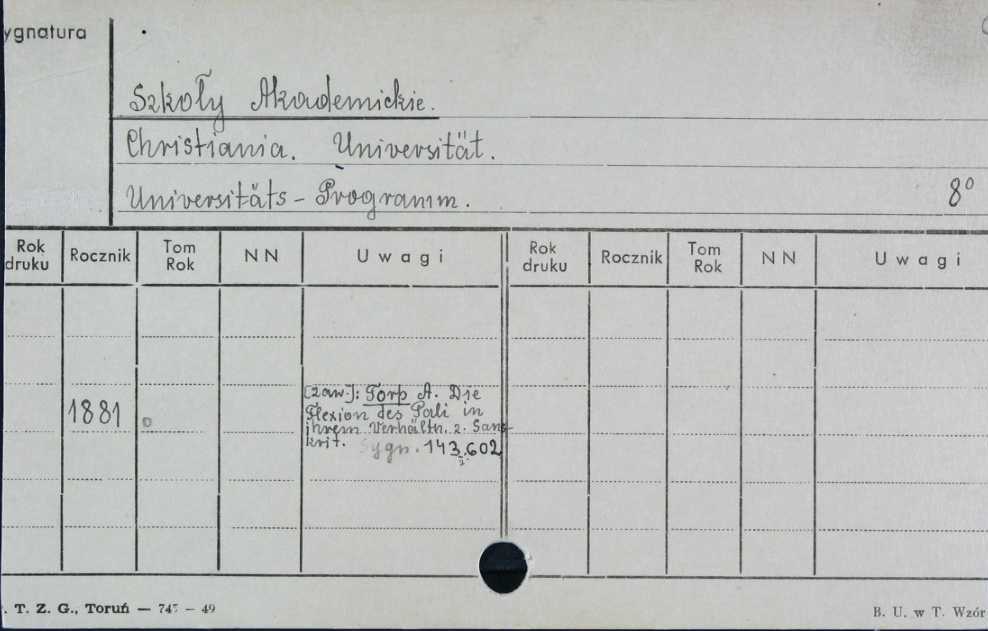 ygnatura
Szkoły Akademickie.
Christiania. Universität.
Universitäts - Programm. 8°
Rok druku Rocznik Tom Rok NN Uwagi Rok druku Rocznik Tom Rok NN Uwagi
1881
[zaw.]: Torp A. Die
Flexion des Pali in
ihrem Verhältn. z. Sans-
krit. Sygn. 143.602
. T. Z. G., Toruń — 745 — 49
B. U. w T. Wzór